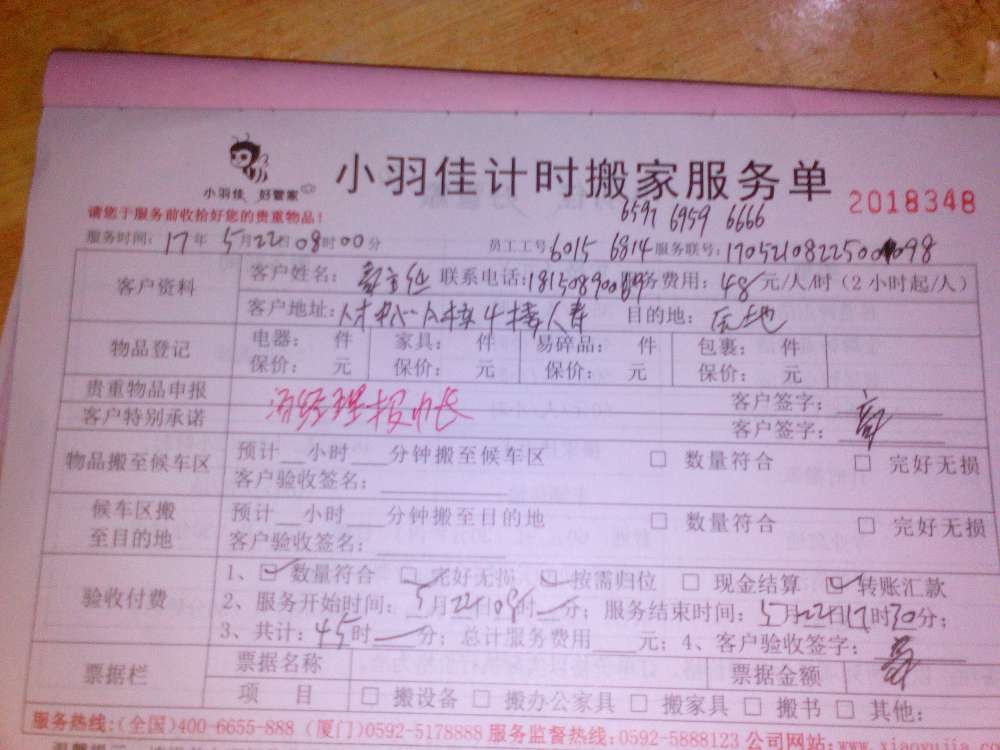 小羽佳 好管家
小羽佳计时搬家服务单
2018348
请您于服务前收拾好您的贵重物品!
6597 6959 6666
服务时间: 17年 5月22日 08时00分 员工工号 6015 6814 服务联号:
客户资料 客户姓名: 联系电话: 务费用: 48元/人/时 (2小时起/人)
客户地址: 目的地: 工地
物品登记 电器: 件 家具: 件 易碎品: 件 包裹: 件
保价: 元 保价: 元 保价: 元 保价: 元
贵重物品申报 客户签字:
客户特别承诺 客户签字:
物品搬至候车区 预计__小时___分钟搬至候车区 □ 数量符合 □ 完好无损
客户验收签名:
候车区搬至目的地 预计__小时___分钟搬至目的地 □ 数量符合 □ 完好无损
客户验收签名:
验收付费 1、☑ 数量符合 □ 完好无损 □ 按需归位 □ 现金结算 ☑ 转账汇款
2、服务开始时间: 5月22日09时__分; 服务结束时间: 5月22日17时30分;
3、共计: 45时__分; 总计服务费用 元; 4、客户验收签字:
票据栏 票据名称 票据金额
项 目 □ 搬设备 □ 搬办公家具 □ 搬家具 □ 搬书 □ 其他:
服务热线:(全国)400-6655-888 (厦门)0592-5178888 服务监督热线:0592-5888123 公司网站: